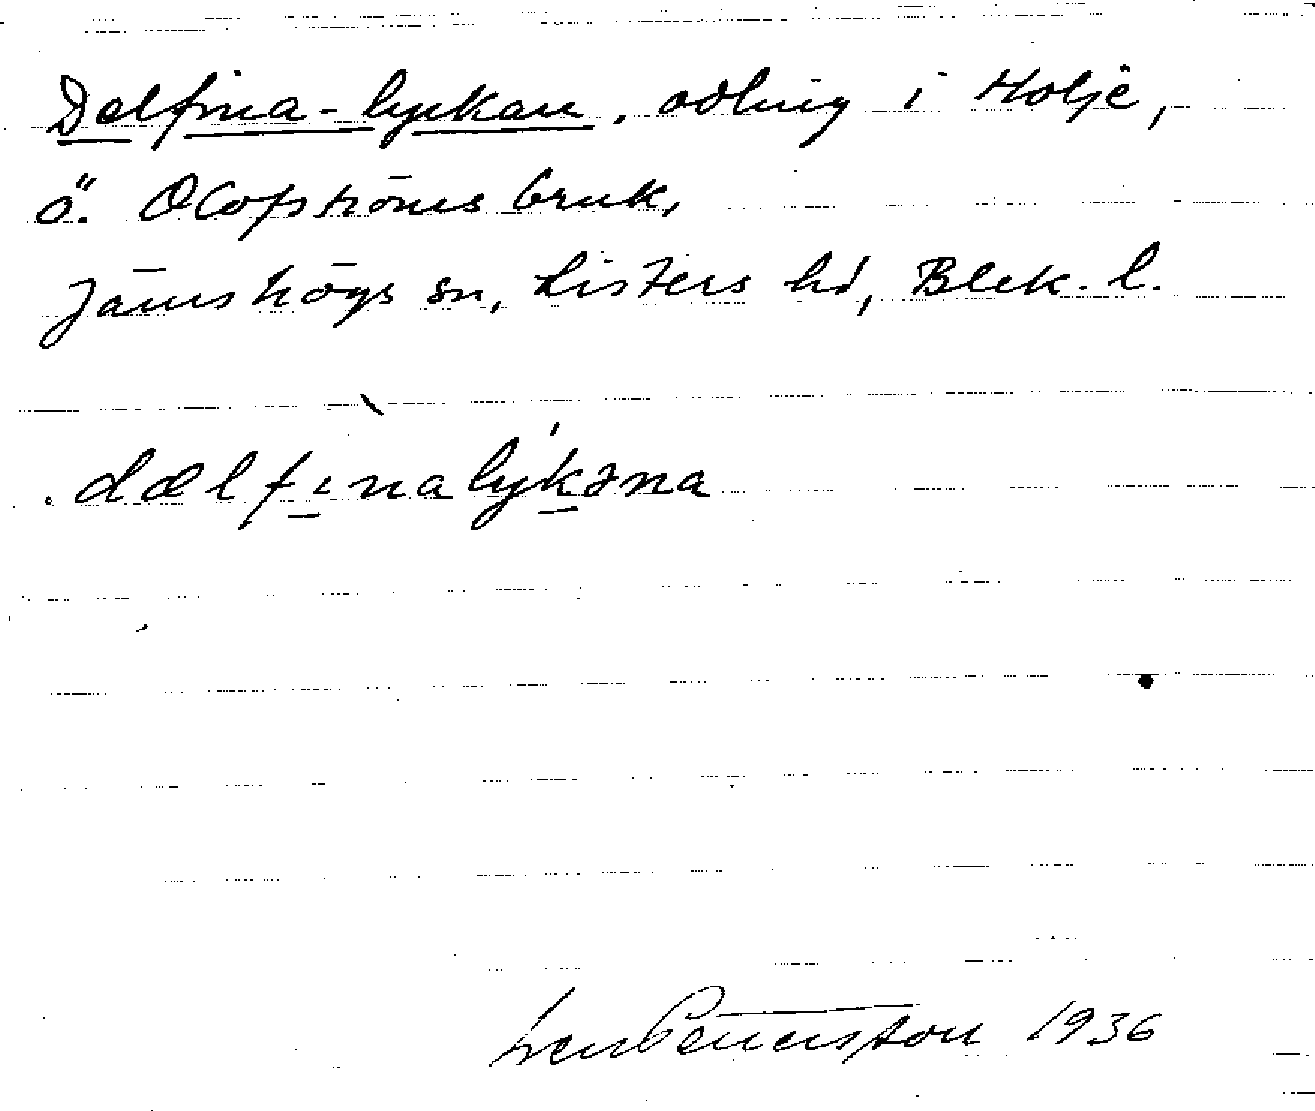 Delfina-lyckan, odling i Holje,
ö. Olofströms bruk,
Jämshögs sn, Listers hd, Blek. l.
dælfinalykəna
1936